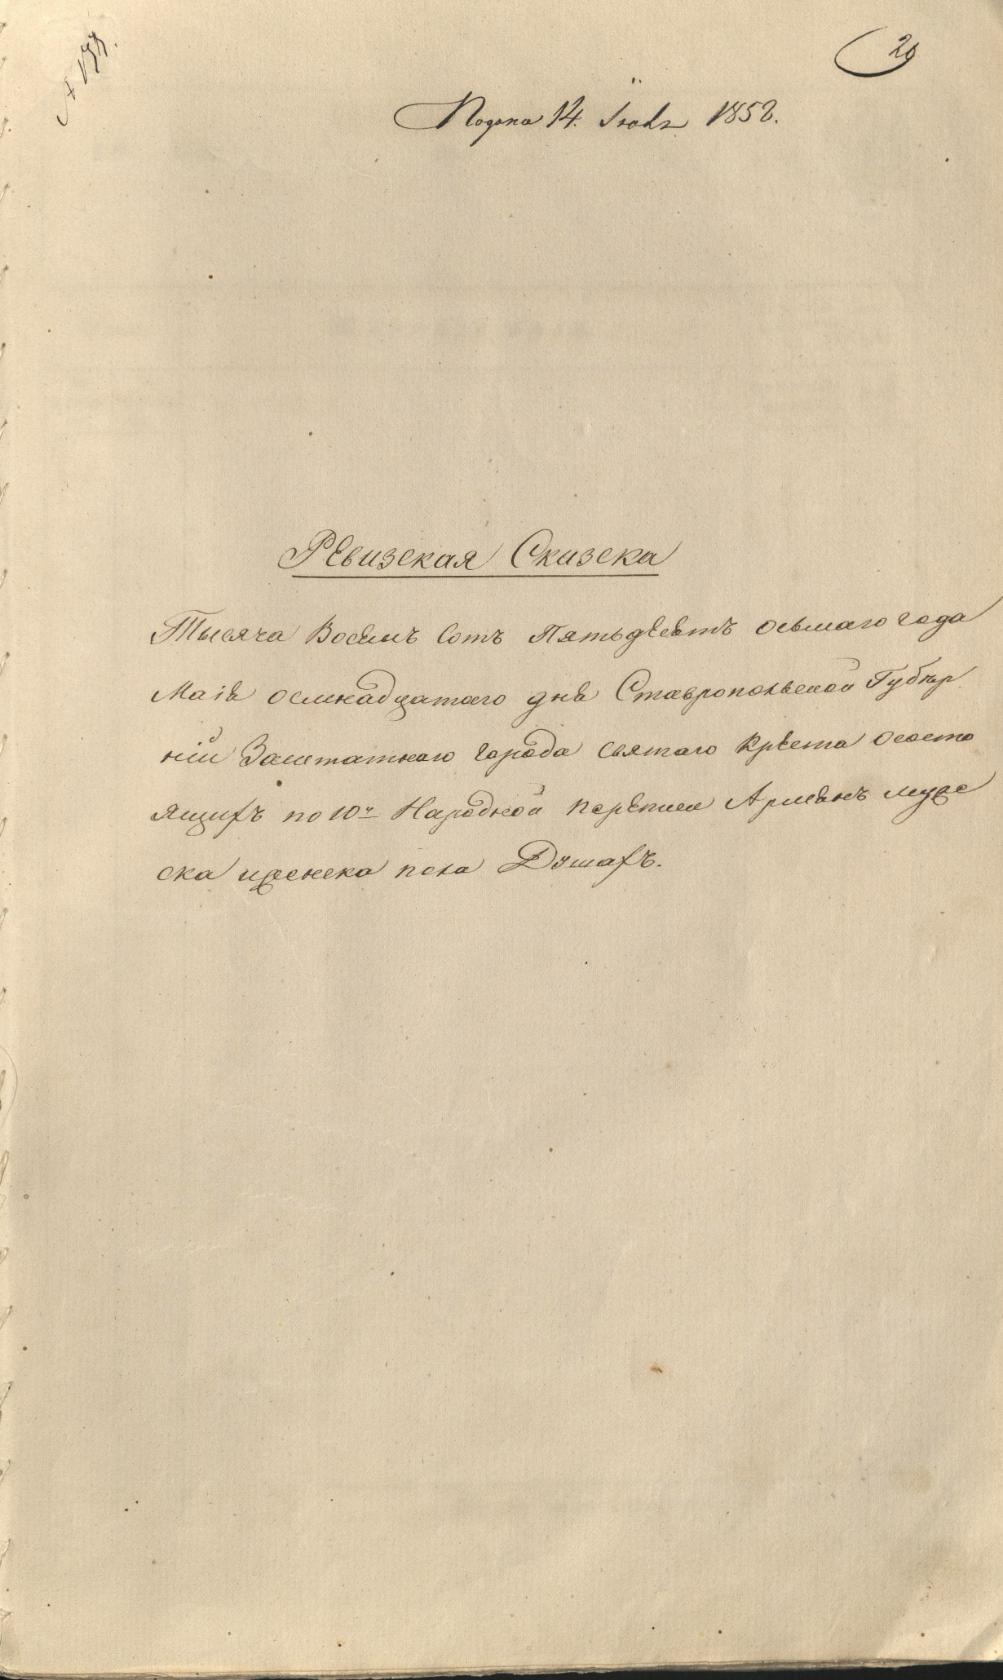 20
Подана 14. Іюня 1858.
Ревизская Сказска
Тысяча Восемъ Сотъ Пятьдесятъ осьмаго года
Маія осмнадцатаго дня Ставропольской Губер
ніи Заштатнаго города святаго Креста ососто
ящихъ по 10й Народной переписи Армянъ мужс
ска иженска пола Душахъ.